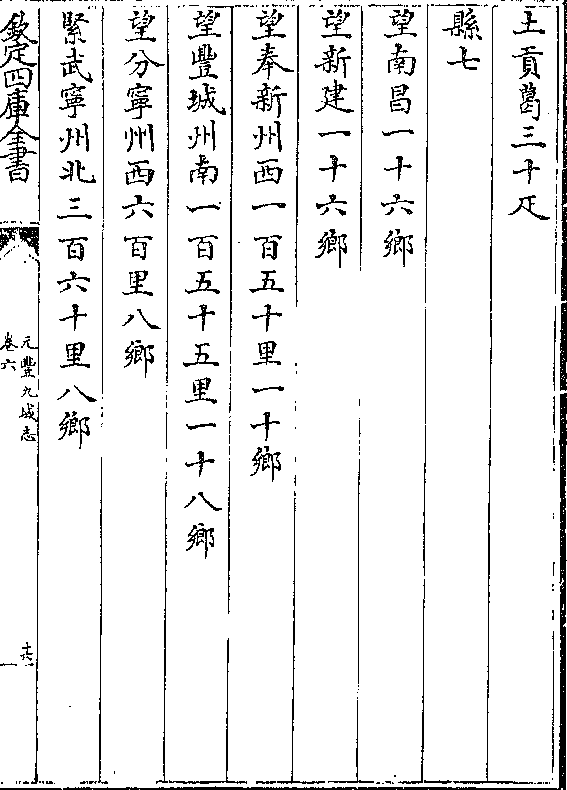 土貢葛三十疋
縣七
望南昌一十六鄉
望新建一十六鄉
望奉新州西一百五十里一十鄉
望豐城州南一百五十五里一十八鄉
望分寧州西六百里八鄉
緊武寧州北三百六十里八鄉
欽定四庫全書
元豐九域志
卷六